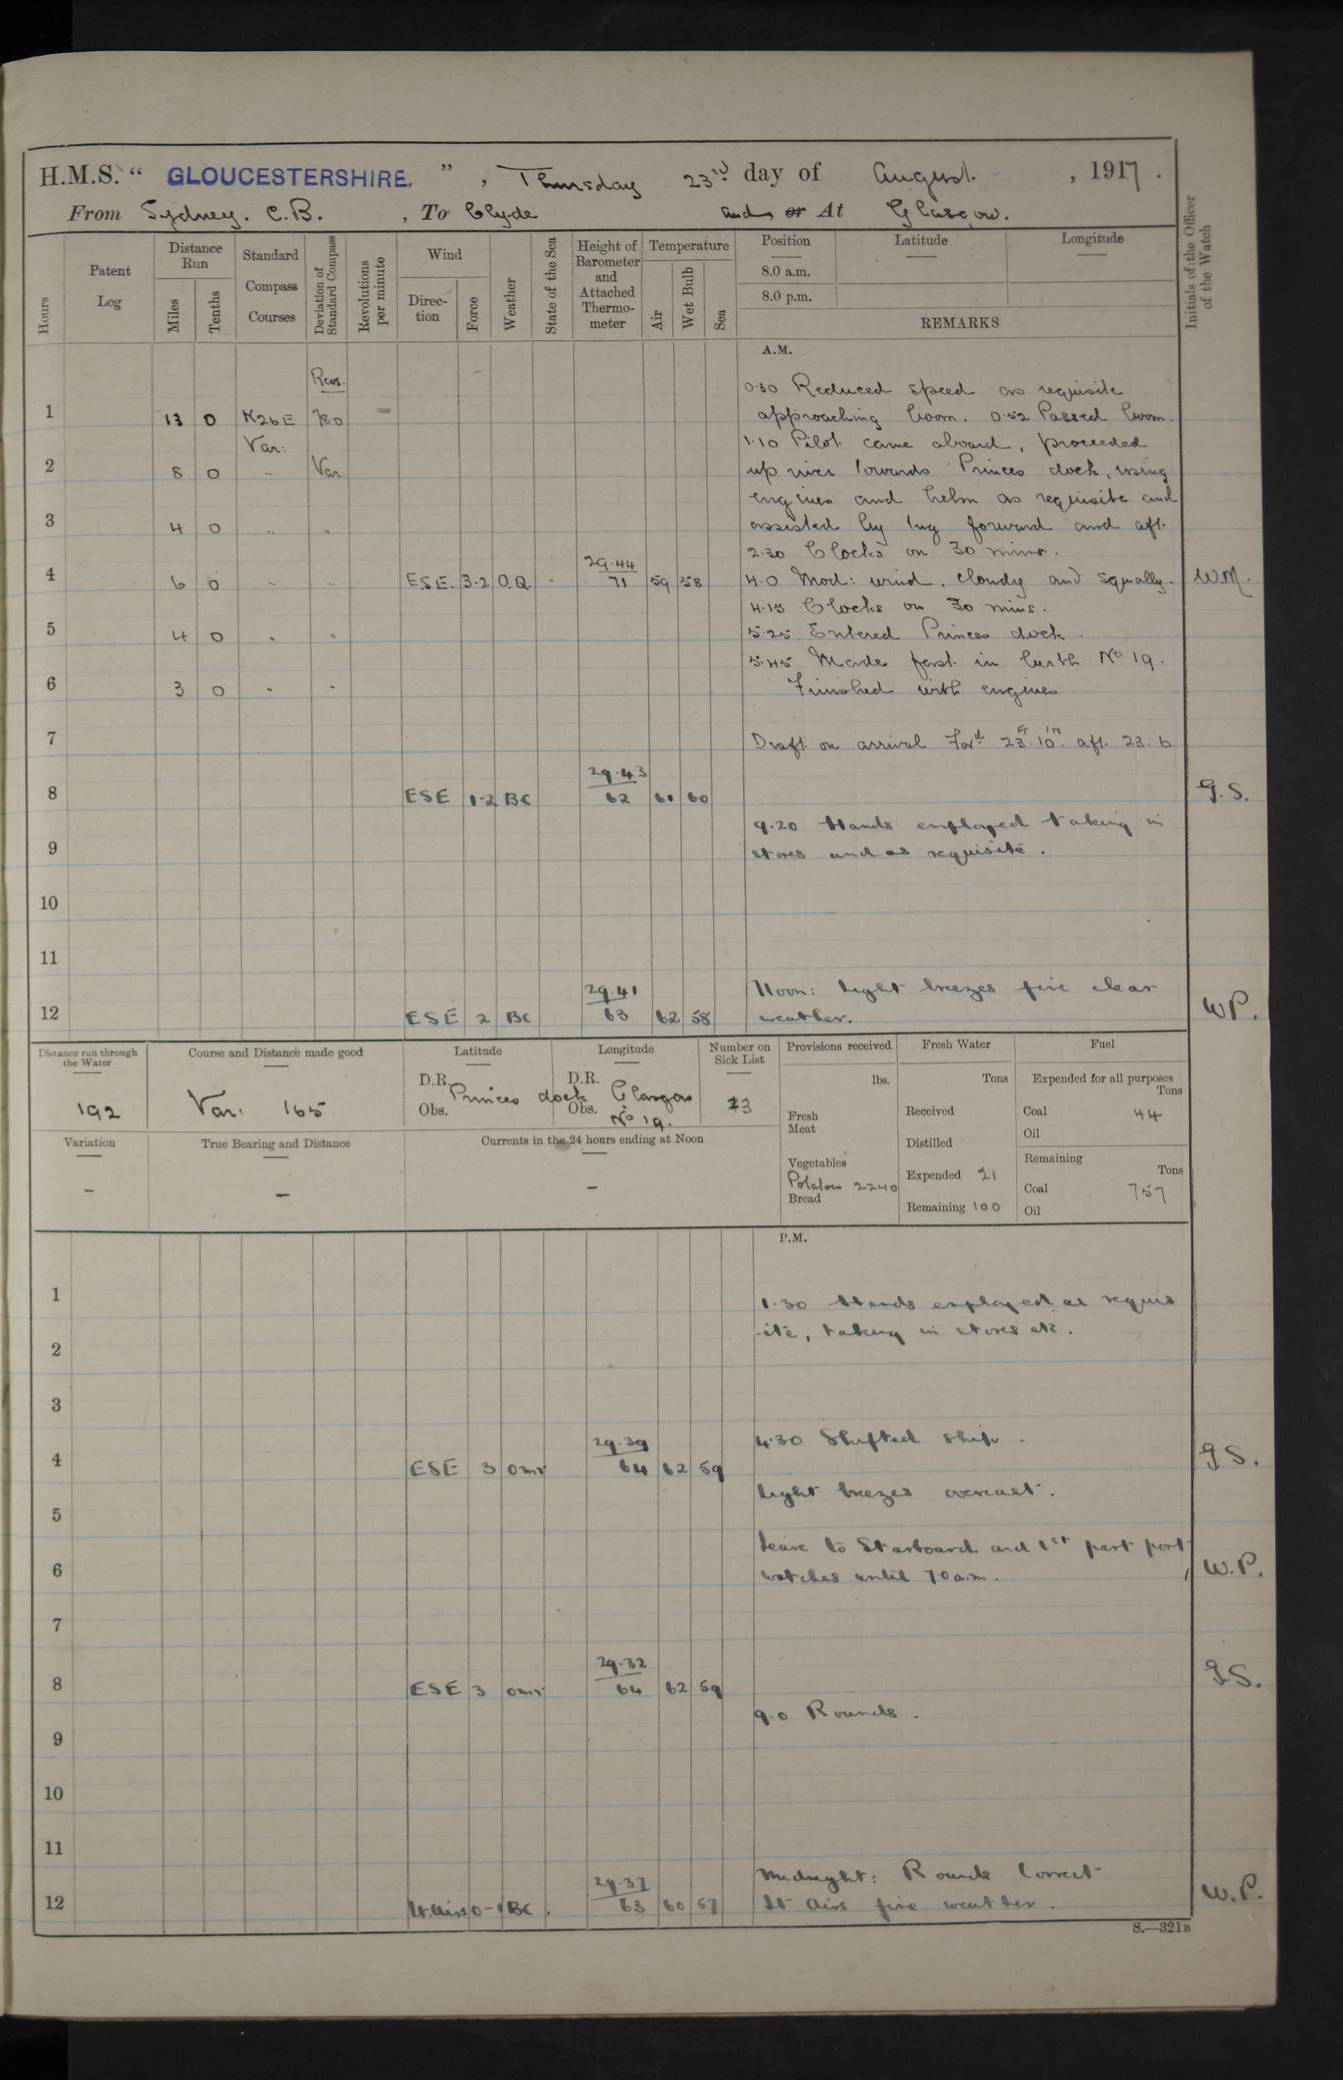 H.M.S. " GLOUCESTERSHIRE. ", Thursday 23rd day of August. , 1917.
From Sydney. C.B. , To Clyde and, or At Glasgow.
Hours
Patent Log
Distance Run
Miles
Tenths
Standard Compass Courses
Deviation of Standard Compass
Revolutions per minute
Wind
Direction
Force
Weather
State of the Sea
Height of Barometer and Attached Thermometer
Temperature
Air
Wet Bulb
Sea
Position
Latitude
Longitude
8.0 a.m.
8.0 p.m.
REMARKS
Initials of the Officer of the Watch
A.M.
Revs.
0.30 Reduced speed as requisite
1 13 0 N26E 780 approaching boom. 0.52 Passed boom.
Var: 1.10 Pilot came aboard, proceeded
2 8 0 " Var up river towards Princes dock, using
engines and helm as requisite and
3 4 0 " " assisted by tug forward and aft.
2.30 Clocks on 30 mins.
29.44
4 6 0 " " E.S.E. 3.2 O.Q. - 71 59 58 4.0 Mod: wind, cloudy and squally. W.M.
4.15 Clocks on 30 mins.
5 4 0 " " 5.25 Entered Princes dock.
5.45 Made fast in berth No 19.
6 3 0 " " Finished with engines
7 Draft on arrival Ford 23ft 10in. aft. 23. 6
29.43
8 ESE 1.2 BC 62 61 60 G.S.
9.20 Hands employed taking in
9 stores and as requisite.
10
11
29.41 Noon: light breezes fine clear
12 ESE 2 BC 63 62 58 weather. W.P.
Distance run through the Water
192
Course and Distance made good
Var: 165
Latitude
D.R.
Obs.
Longitude
D.R.
Obs.
Princes dock Glasgow
No 19.
Number on Sick List
3
Provisions received
lbs.
Fresh Meat
Vegetables
Potatoes 2240
Bread
Fresh Water
Tons
Received
Distilled
Expended 21
Remaining 100
Fuel
Expended for all purposes
Tons
Coal 44
Oil
Remaining
Tons
Coal 757
Oil
Variation
-
True Bearing and Distance
-
Currents in the 24 hours ending at Noon
-
P.M.
1 1.30 Hands employed as requis
-ite, taking in stores etc.
2
3
29.39 4.30 Shifted ship.
4 ESE 3 omr 64 62 59 G.S.
light breezes overcast.
5
Leave to Starboard and 1st part port
6 watches until 7.0 a.m. W.P.
7
29.32
8 ESE 3 omr 64 62 59 G.S.
9.0 Rounds.
9
10
11
29.37 Midnight: Rounds Correct
12 Lt. airs 0-1 BC. 63 60 57 Lt airs fine weather. W.P.
S.—321B